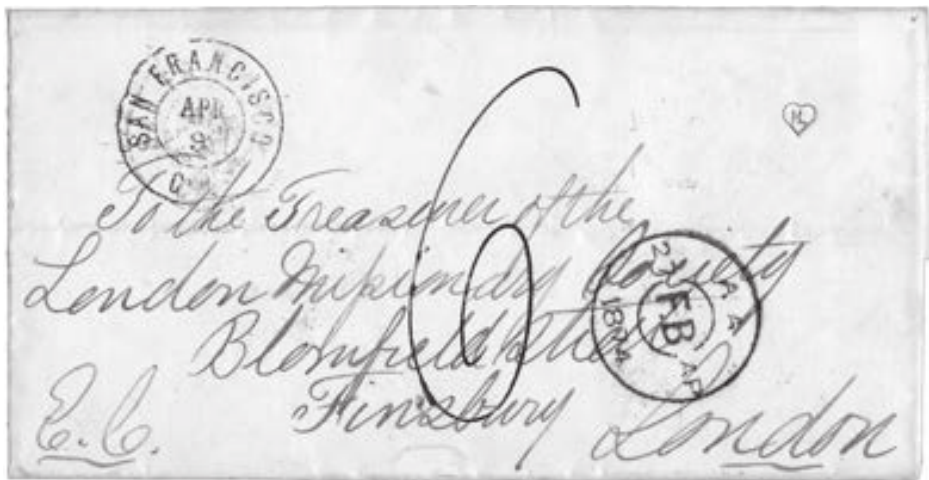 SAN FRANCISCO
APR
9
To the Treasurer of the
London Missionary Society
Blomfield
Finsbury
E.C. London
6
FB
AP
1874